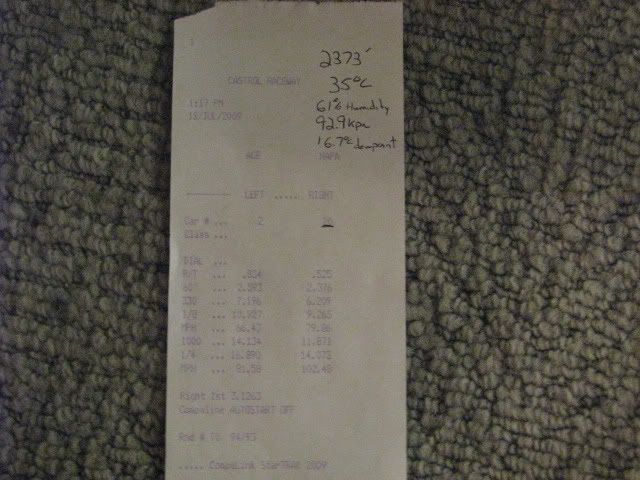 2373'
35°C
CASTROL RACEWAY
61% Humidity
1:17 PM
92.9kpa
18/JUL/2009
16.7°C dewpoint
AGE NAPA
LEFT ..... RIGHT
Car # ... 2
Class ...
DIAL ...
R/T ... .834 .525
60' ... 2.593 2.376
330 ... 7.196 6.209
1/8 ... 10.927 9.265
MPH ... 66.43 79.86
1000 ... 14.134 11.871
1/4 ... 16.890 14.073
MPH ... 81.58 102.48
Right 1st 3.1263
CompuLink AUTOSTART OFF
Rnd # T0 94/93
..... CompuLink StarTRAK 2009